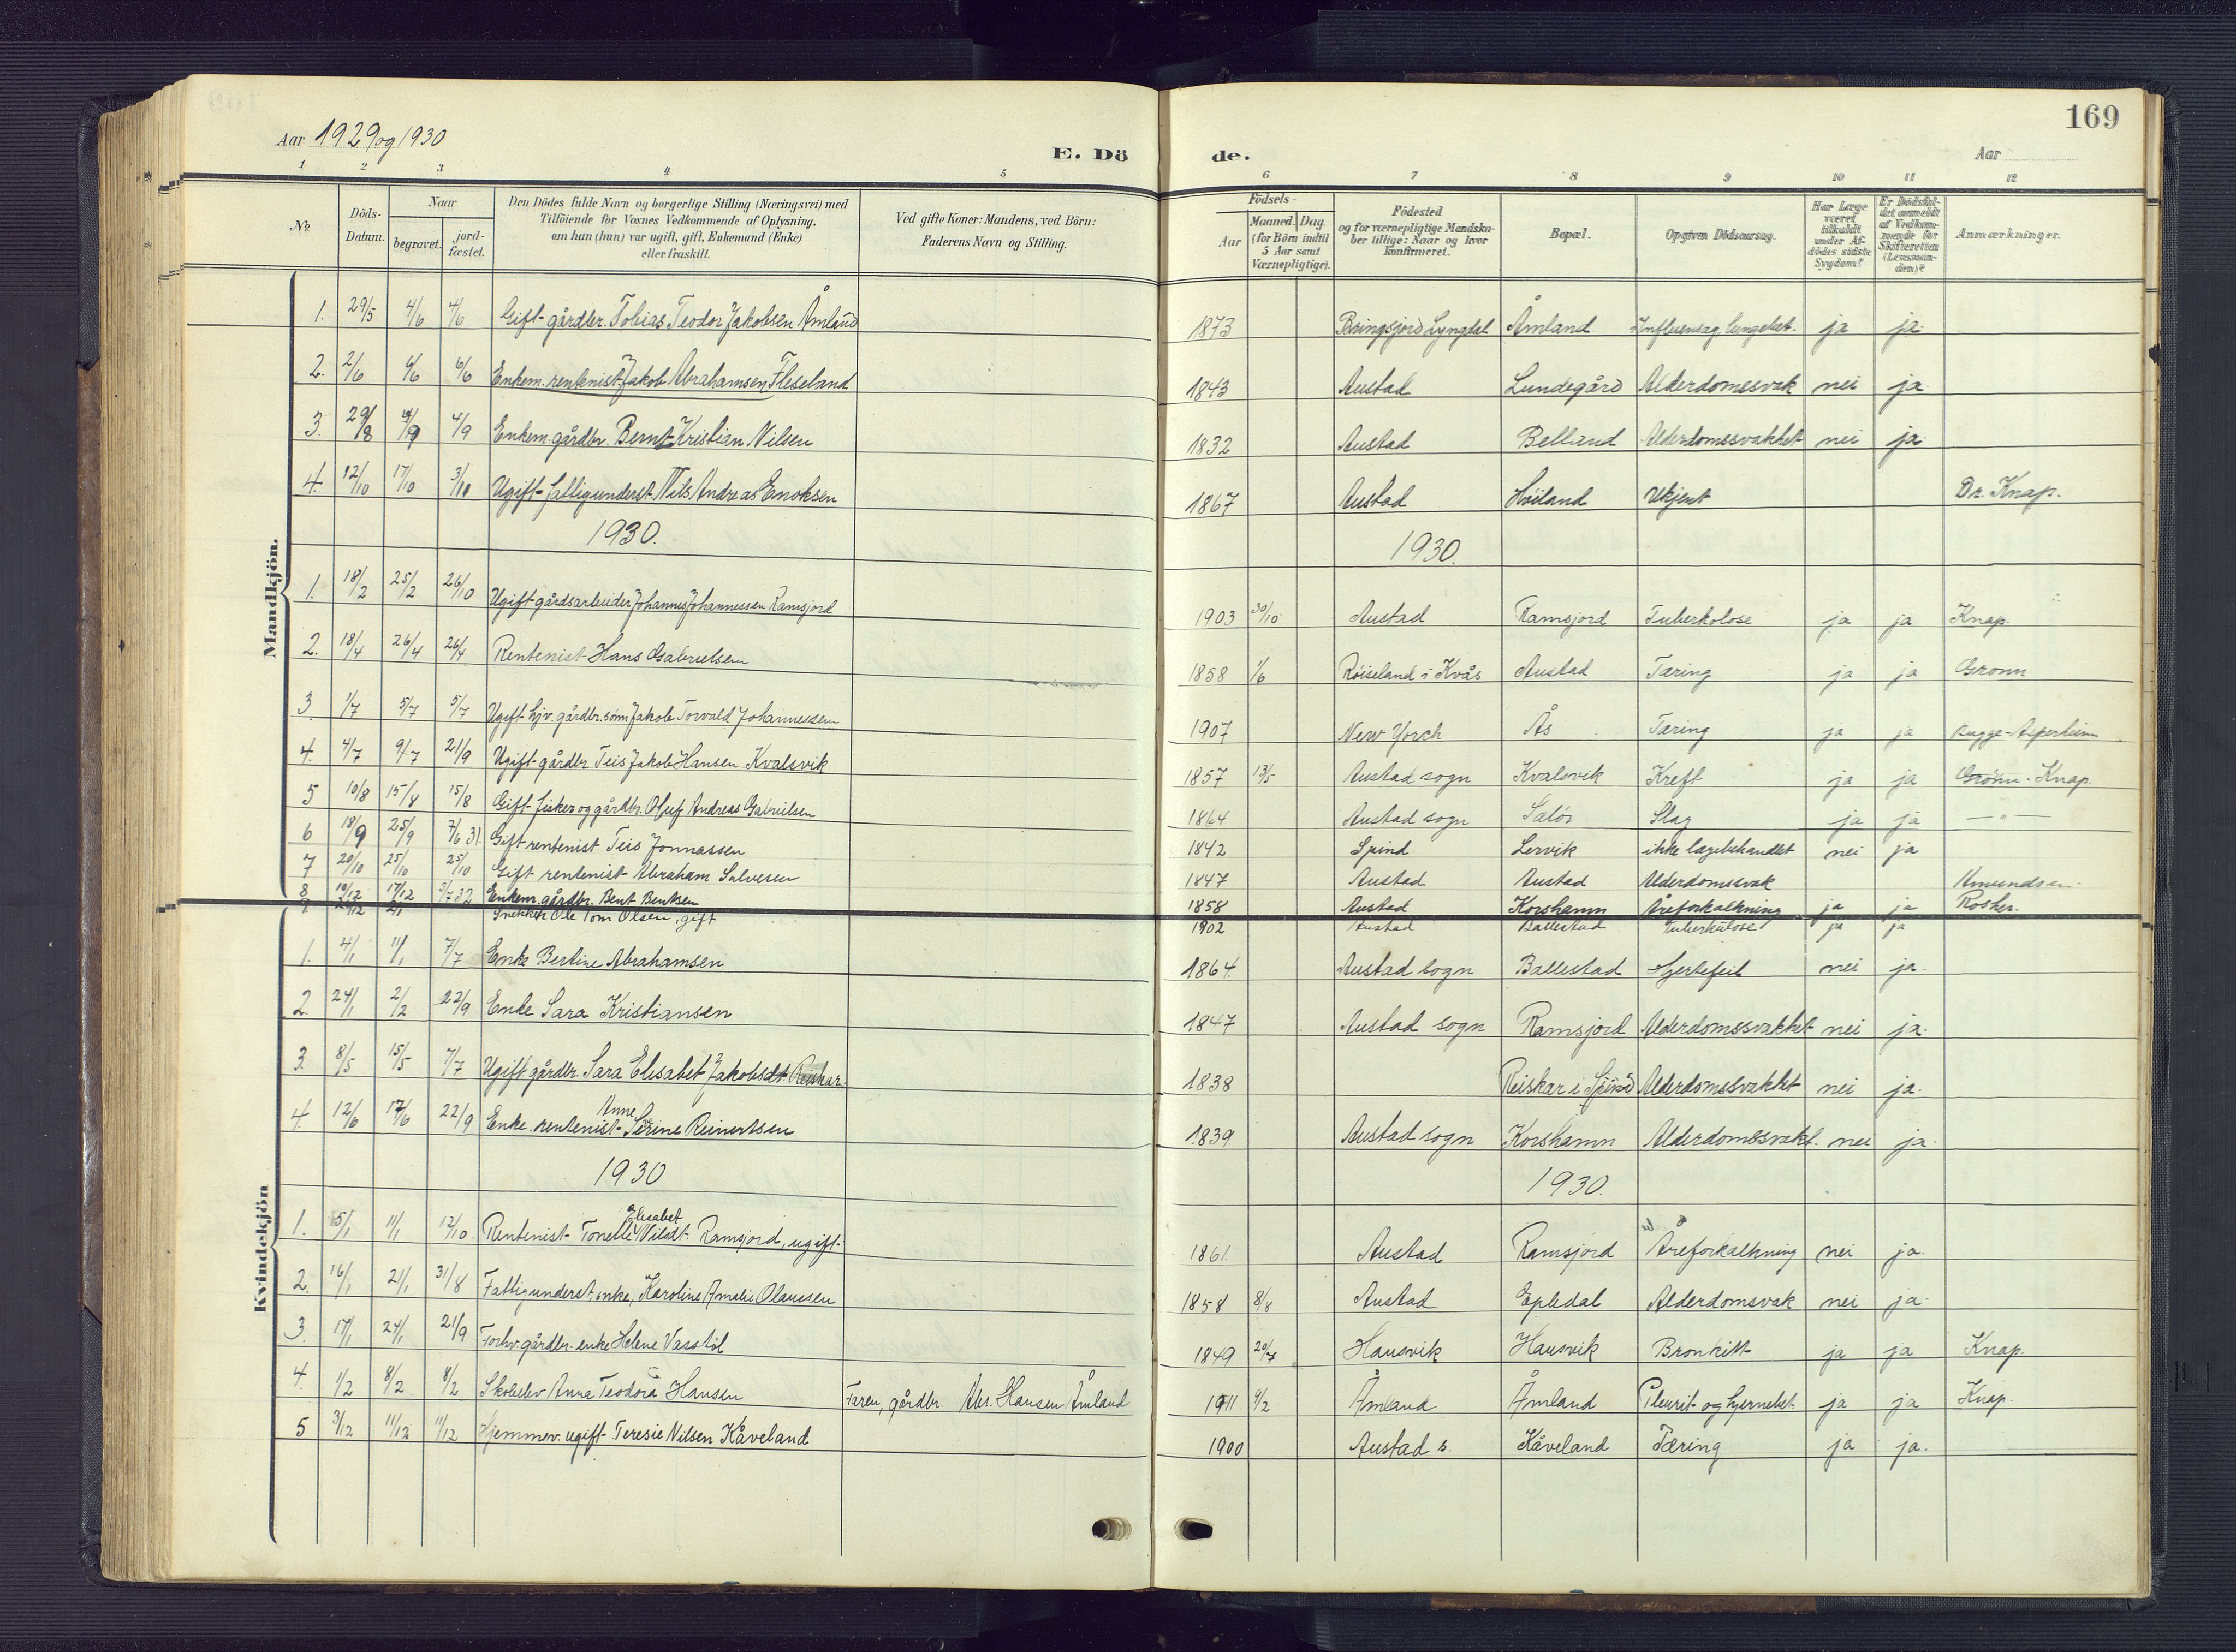 169
Aar 1929 og 1930
E. Dö de.
Aar
1 2 3 4 5 6 7 8 9 10 11 12
№
Döds-Datum.
Naar
begravet.
jord-fæstet.
Den Dödes fulde Navn og borgerlige Stilling (Næringsvei) med
Tilföiende for Voxnes Vedkommende af Oplysning,
om han (hun) var ugift, gift, Enkemand (Enke)
eller fraskilt.
Ved gifte Koner: Mandens, ved Börn:
Faderens Navn og Stilling.
Födsels-
Aar
Maaned. Dag
(for Börn indtil
5 Aar samt
Værnepligtige).
Födested
og for værnepligtige Mandska-
ber tillige: Naar og hvor
konfirmeret.
Bopæl.
Opgiven Dödsaarsag.
Har Læge
været
tilkaldt
under Af-
dödes sidste
Sygdom?
Er Dödsfal-
det anmeldt
af Vedkom-
mende for
Skifteretten
(Lensman-
den)?
Anmærkninger.
Mandkjön.
1. 29/5 4/6 4/6 Gift gårdbr. Tobias Teodor Jakobsen Åmland 1873 Bringsjord Lyngdal Åmland Influensa, lungebet. ja ja.
2. 2/6 6/6 6/6 Enkem. rentenist Jakob Abrahamsen Fleseland 1843 Austad Lundegård Alderdomssvak nei ja
3. 29/8 4/9 4/9 Enkem. gårdbr. Bernt Kristian Nilsen 1832 Austad Belland Alderdomssvakhet nei ja
4. 12/10 17/10 3/10 Ugift fattigunderst. Nils Andreas Enoksen 1867 Austad Høiland Ukjent Dr. Knap.
1930. 1930.
1. 18/2 25/2 26/10 Ugift gårdsarbeider Johannes Johannessen Ramsjord 1903 30/10 Austad Ramsjord Tuberkolose ja ja Knap.
2. 18/4 26/4 26/4 Rentenist Hans Gabrielsen 1858 1/6 Røiseland i Kvås Austad Tæring ja ja Grønn
3 1/7 5/7 5/7 Ugift hjv. gårdbr. sønn Jakob Torvald Johannessen 1907 New Yorch Ås Tæring ja ja Rugge-Asperheim
4. 4/7 9/7 21/9 Ugift gårdbr. Teis Jakob Hansen Kvalsvik 1857 13/5 Austad sogn Kvalsvik Kreft ja ja Grönn - Knap.
5 10/8 15/8 15/8 Gift fisker og gårdbr. Oluf Andreas Gabrielsen 1864 Austad sogn Saløi Slag ja ja —"—
6 18/9 25/9 7/6 31. Gift rentenist Teis Jonnassen 1842 Spind Lervik ikke lægebehandlet nei ja
7 20/10 25/10 25/10 Gift rentenist Abraham Salvesen 1847 Austad Austad Alderdomssvak Amundsen
8 10/12 17/12 3/7 32 Enkem. gårdbr. Bent Bentsen 1858 Austad Korshamn Åreforkalkning ja ja Rosher.
9. Snekker Ole Tom Olsen, gift 1902 Austad Ballestad Tuberkulose ja ja
Kvindekjön
1. 4/1 11/1 7/7 Enke Bertine Abrahamsen 1864. Austad sogn Ballestad Hjertefeil nei ja.
2. 24/1 2/2 22/9 Enke Sara Kristiansen 1847 Austad sogn Ramsjord Alderdomssvakhet nei ja.
3. 8/5 15/5 7/7 Ugift gårdbr. Sara Elisabet Jakobsdt. Reiskar. 1838 Reiskar i Spind Alderdomssvakhet nei ja.
4. 12/6 17/6 22/9 Enke. rentenist Anne Serine Reinertsen 1839. Austad sogn Korshamn Alderdomssvakh. nei ja.
1930 1930.
1. 5/1 11/1 12/10 Rentenist Tonette Elisabet Nilsdt. Ramsjord, ugift. 1861. Austad Ramsjord Åreforkalkning nei ja.
2. 16/1 21/1 31/8 Fattigunderst., enke, Karoline Amalie Olaussen 1858 8/8 Austad Epledal Alderdomsvak nei ja.
3. 17/1 24/1 21/9 Forhv. gårdbr. enke Helene Vasstøl 1849 20/7 Hausvik Hausvik Bronkitt ja ja Knap.
4. 1/2 8/2 8/2 Skoleelev Anna Teodora Hansen Faren, gårdbr. Abr. Hansen Åmland 1911 9/2 Åmland Åmland Pleurit og hjernebet. ja ja Knap.
5 3/12 11/12 11/12 Hjemmev. ugift Teresie Nilsen Kåveland 1900 Austad s. Kåveland Tæring ja ja.